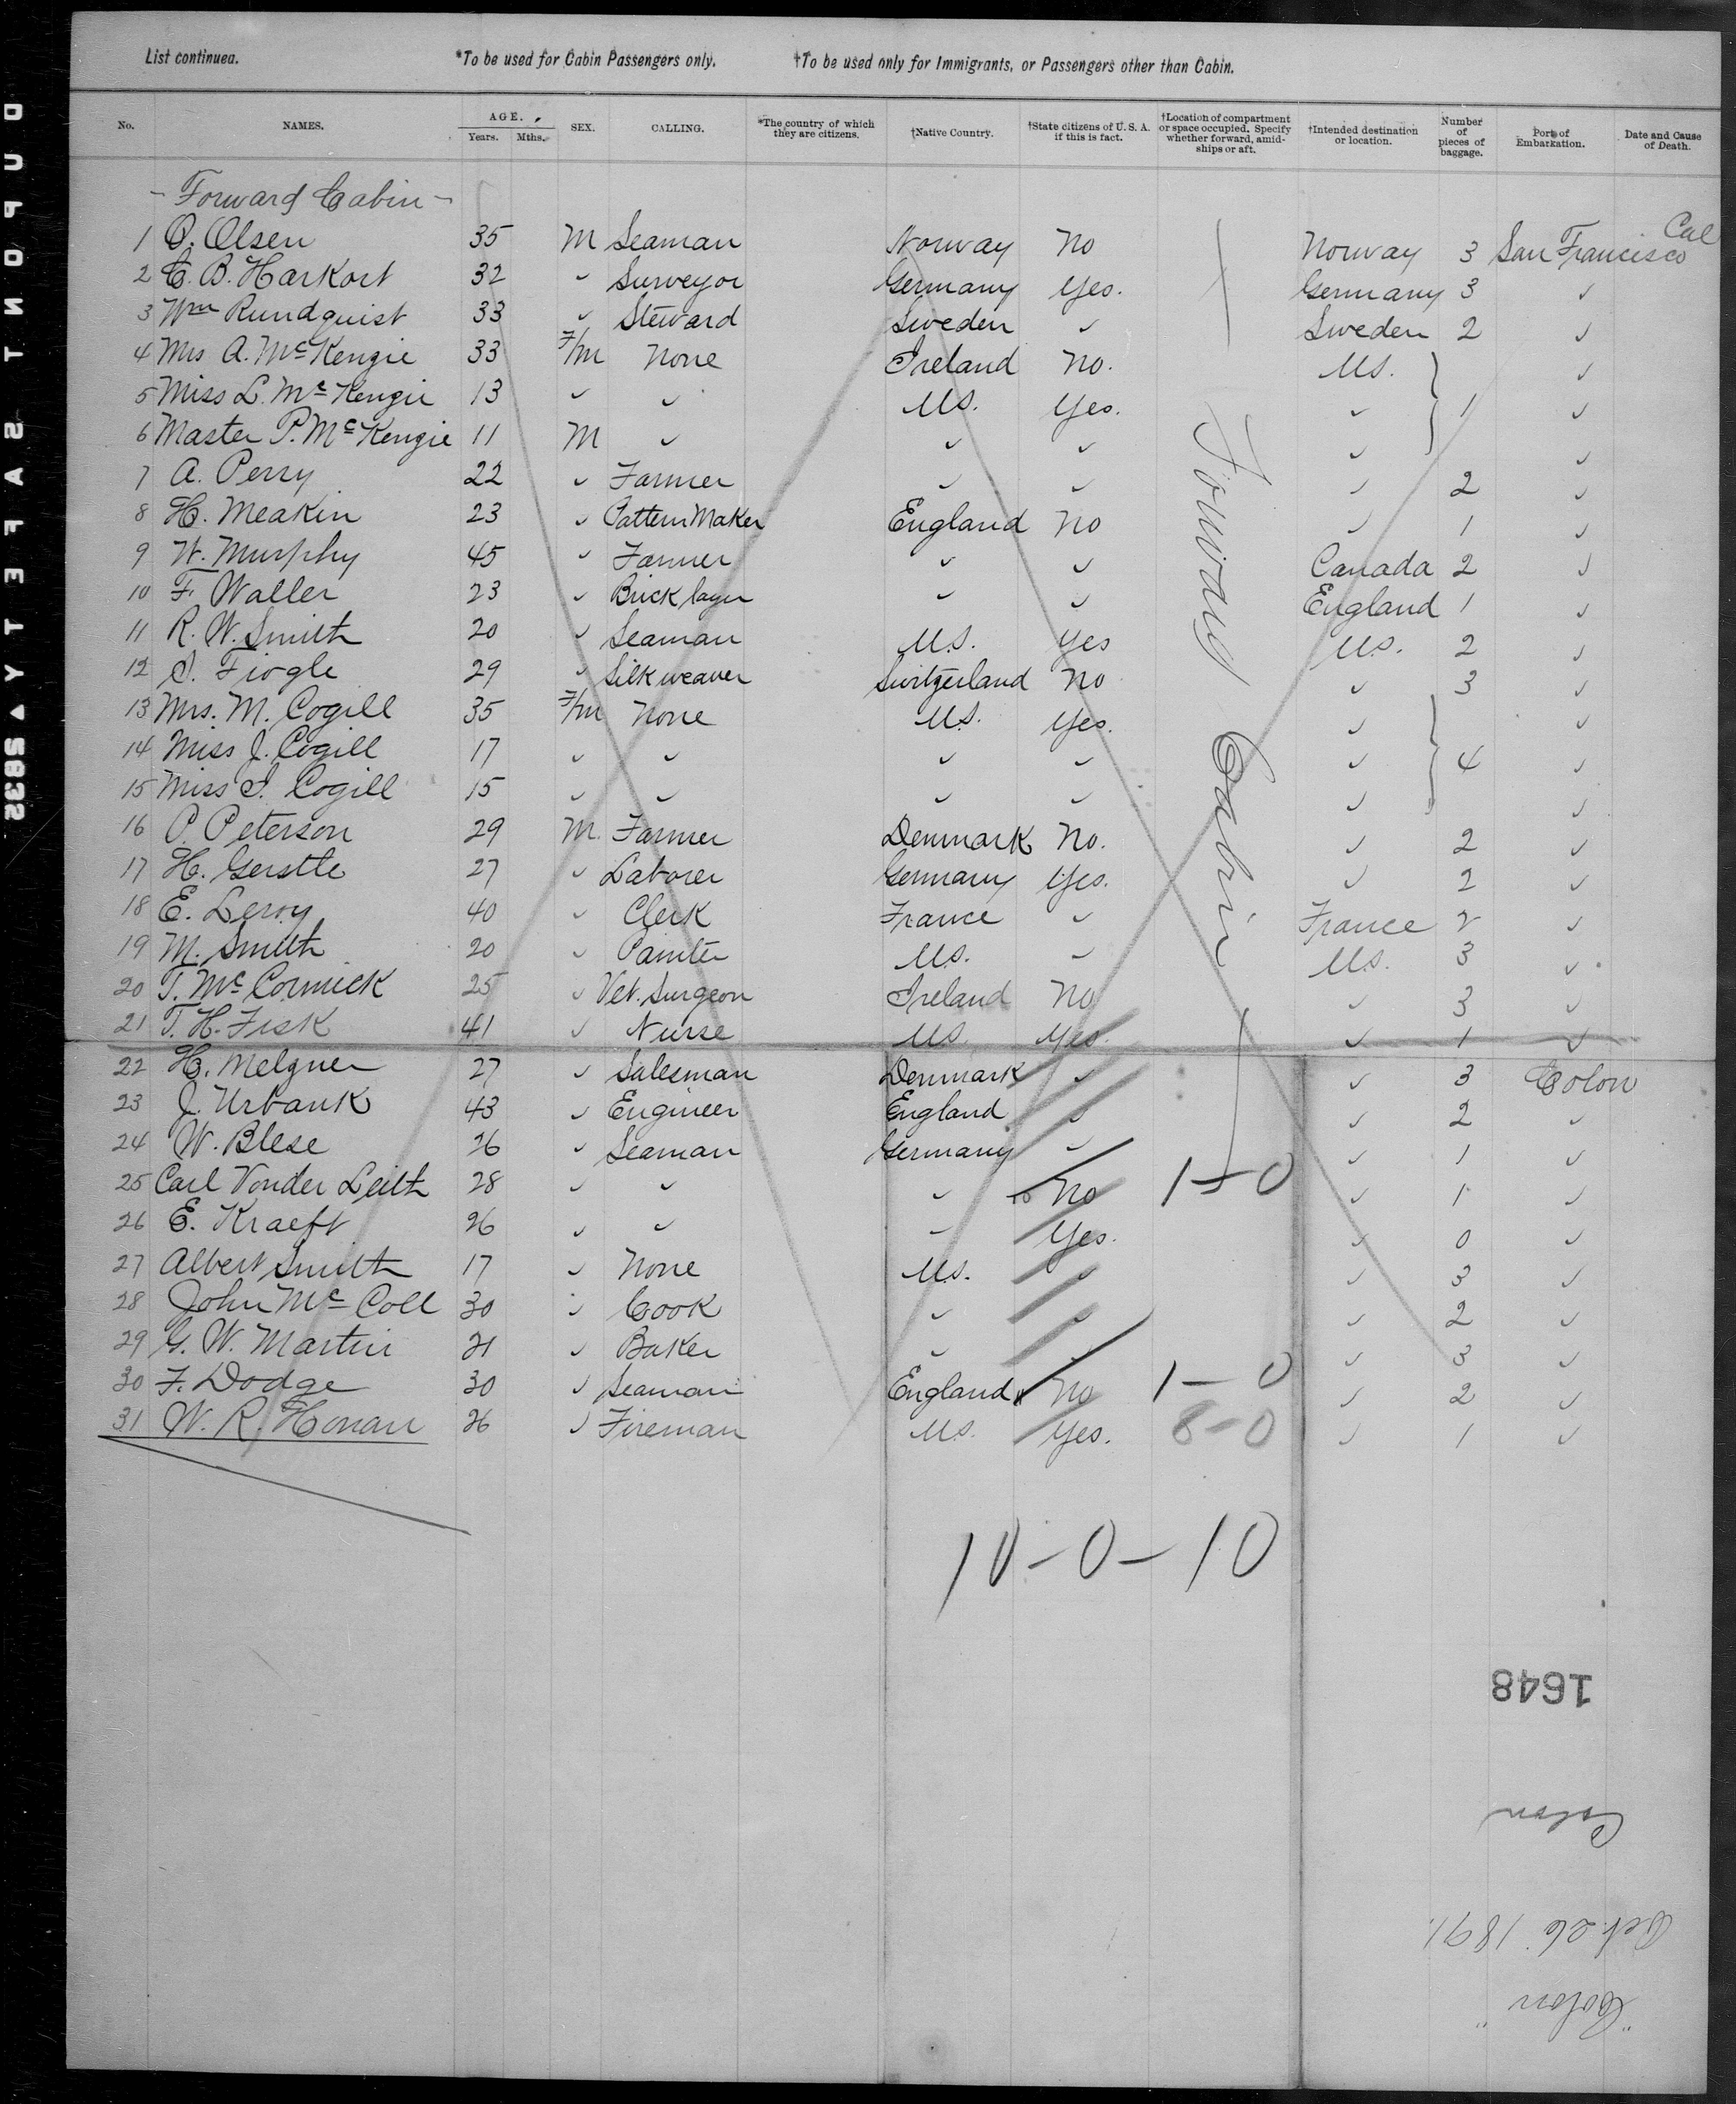 List continued. *To be used for Cabin Passengers only. †To be used only for Immigrants, or Passengers other than Cabin.
No. NAMES. AGE. Years. Mths. SEX. CALLING. *The country of which they are citizens. †Native Country. †State citizens of U. S. A. if this is fact. †Location of compartment or space occupied. Specify whether forward, amidships or aft. †Intended destination or location. Number of pieces of baggage. Port of Embarkation. Date and Cause of Death.
- Forward Cabin -
1 O. Olsen 35 M Seaman Norway No Norway 3 San Francisco Cal
2 C. B. Harkort 32 " Surveyor Germany Yes. Germany 3 "
3 Wm Rundquist 33 " Steward Sweden " Sweden 2 "
4 Mrs A. McKenzie 33 F/m None Ireland No. U.S. "
5 Miss L. McKenzie 13 " " U.S. Yes. " 1 "
6 Master P. McKenzie 11 M " " " " "
7 A. Perry 22 " Farmer " " " 2 "
8 H. Meakin 23 " Pattern Maker England No " 1 "
9 W. Murphy 45 " Farmer " " Canada 2 "
10 F. Waller 23 " Brick layer " " England 1 "
11 R. W. Smith 20 " Seaman U.S. Yes U.S. 2 "
12 S. Fiogle 29 " Silk weaver Switzerland No " 3 "
13 Mrs. M. Cogill 35 F/m None U.S. Yes. " "
14 Miss J. Cogill 17 " " " " " 4 "
15 Miss I. Cogill 15 " " " " " "
16 P. Peterson 29 M. Farmer Denmark No. " 2 "
17 H. Gerstle 27 " Laborer Germany Yes. " 2 "
18 E. Leroy 40 " Clerk France " France 2 "
19 M. Smith 20 " Painter U.S. " U.S. 3 "
20 T. McCormick 25 " Vet. Surgeon Ireland No " 3 "
21 T. H. Fisk 41 " Nurse U.S. Yes. " 1 "
22 H. Melgner 27 " Salesman Denmark " " 3 Colon
23 J. Urbank 43 " Engineer England " " 2 "
24 W. Blese 26 " Seaman Germany " " 1 "
25 Carl Vonder Leith 28 " " " No 1-0 " 1 "
26 E. Kraeft 26 " " " Yes. " 0 "
27 Albert Smith 17 " None U.S. " " 3 "
28 John McColl 30 " Cook " " " 2 "
29 G. W. Martin 21 " Baker " " " 3 "
30 F. Dodge 30 " Seaman England No 1-0 " 2 "
31 W. R. Honan 26 " Fireman U.S. Yes. 8-0 " 1 "
Forward Cabin
10-0-10
1648
Colon
Oct. 26 1891.
"Colon"